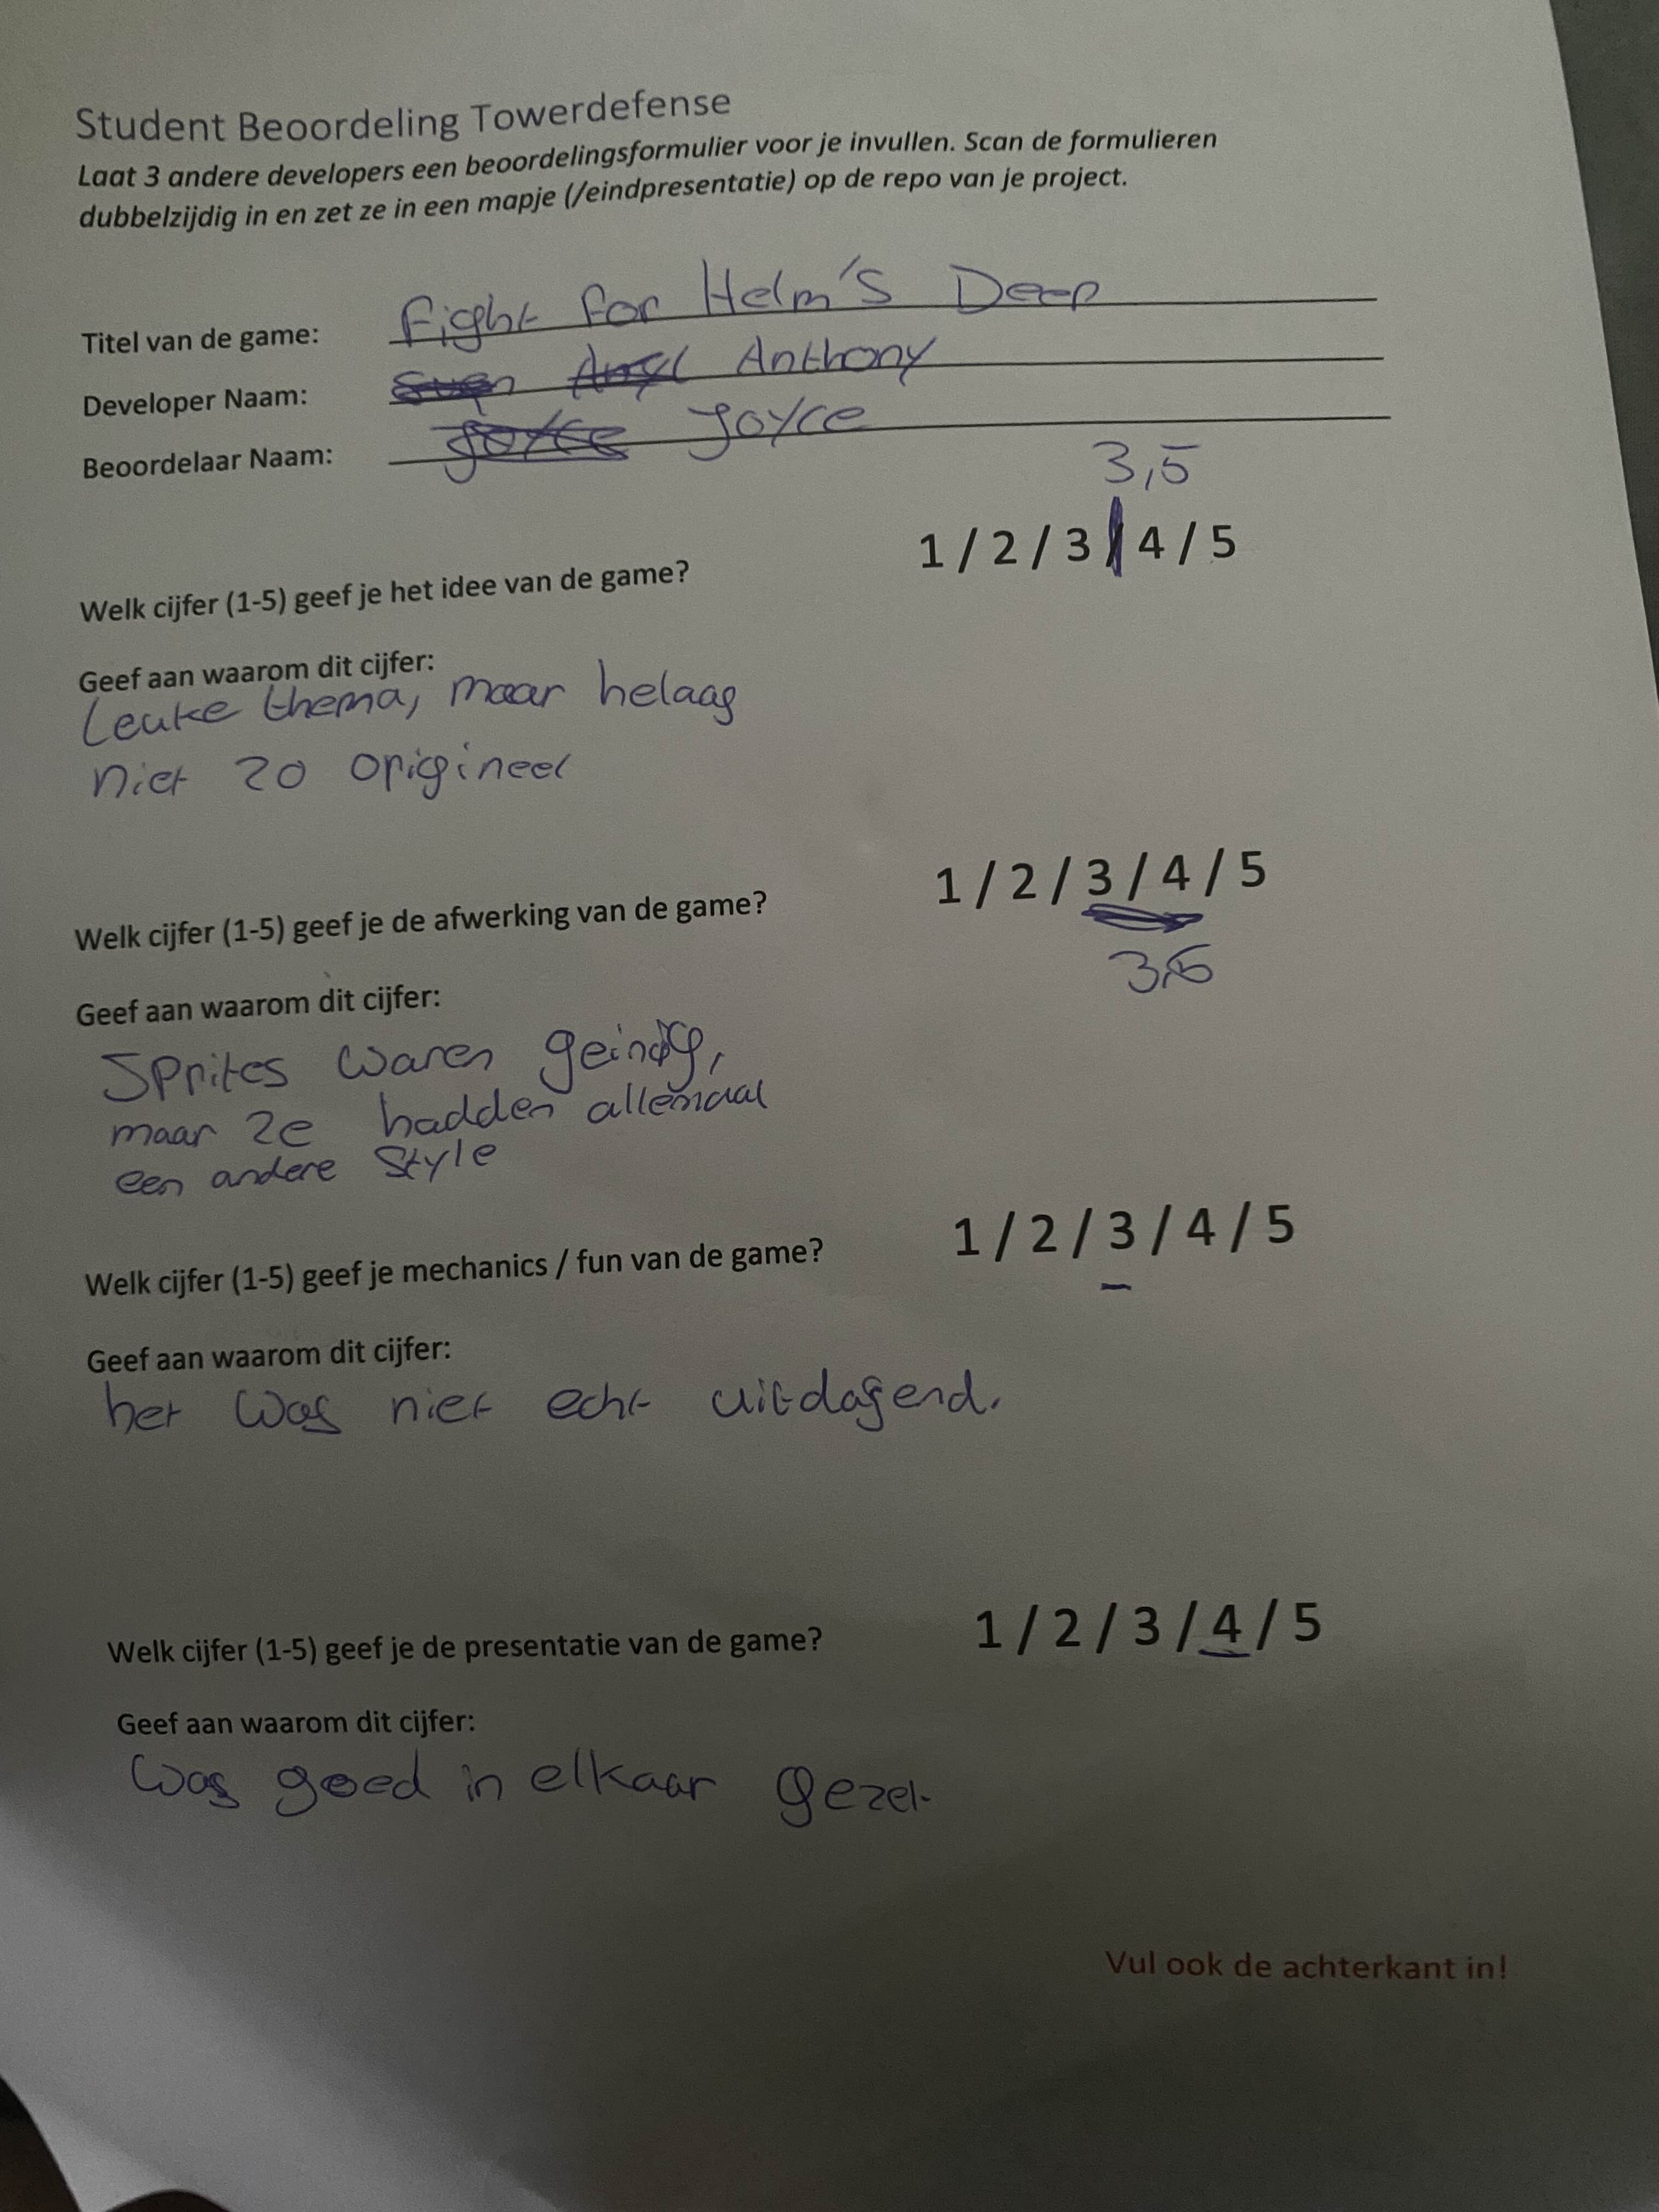 Student Beoordeling Towerdefense
Laat 3 andere developers een beoordelingsformulier voor je invullen. Scan de formulieren
dubbelzijdig in en zet ze in een mapje (/eindpresentatie) op de repo van je project.
Titel van de game: Fight for Helm's Deep
Developer Naam: Anthony
Beoordelaar Naam: Joyce Joyce
3,5
Welk cijfer (1-5) geef je het idee van de game? 1 / 2 / 3 / 4 / 5
Geef aan waarom dit cijfer:
Leuke thema, maar helaas
niet zo origineel
Welk cijfer (1-5) geef je de afwerking van de game? 1 / 2 / 3 / 4 / 5
Geef aan waarom dit cijfer:
Sprites waren
maar ze hadden allemaal
een andere Style
Welk cijfer (1-5) geef je mechanics / fun van de game? 1 / 2 / 3 / 4 / 5
Geef aan waarom dit cijfer:
het was niet echt uitdagend.
Welk cijfer (1-5) geef je de presentatie van de game? 1 / 2 / 3 / 4 / 5
Geef aan waarom dit cijfer:
Was goed in elkaar gezet
Vul ook de achterkant in!